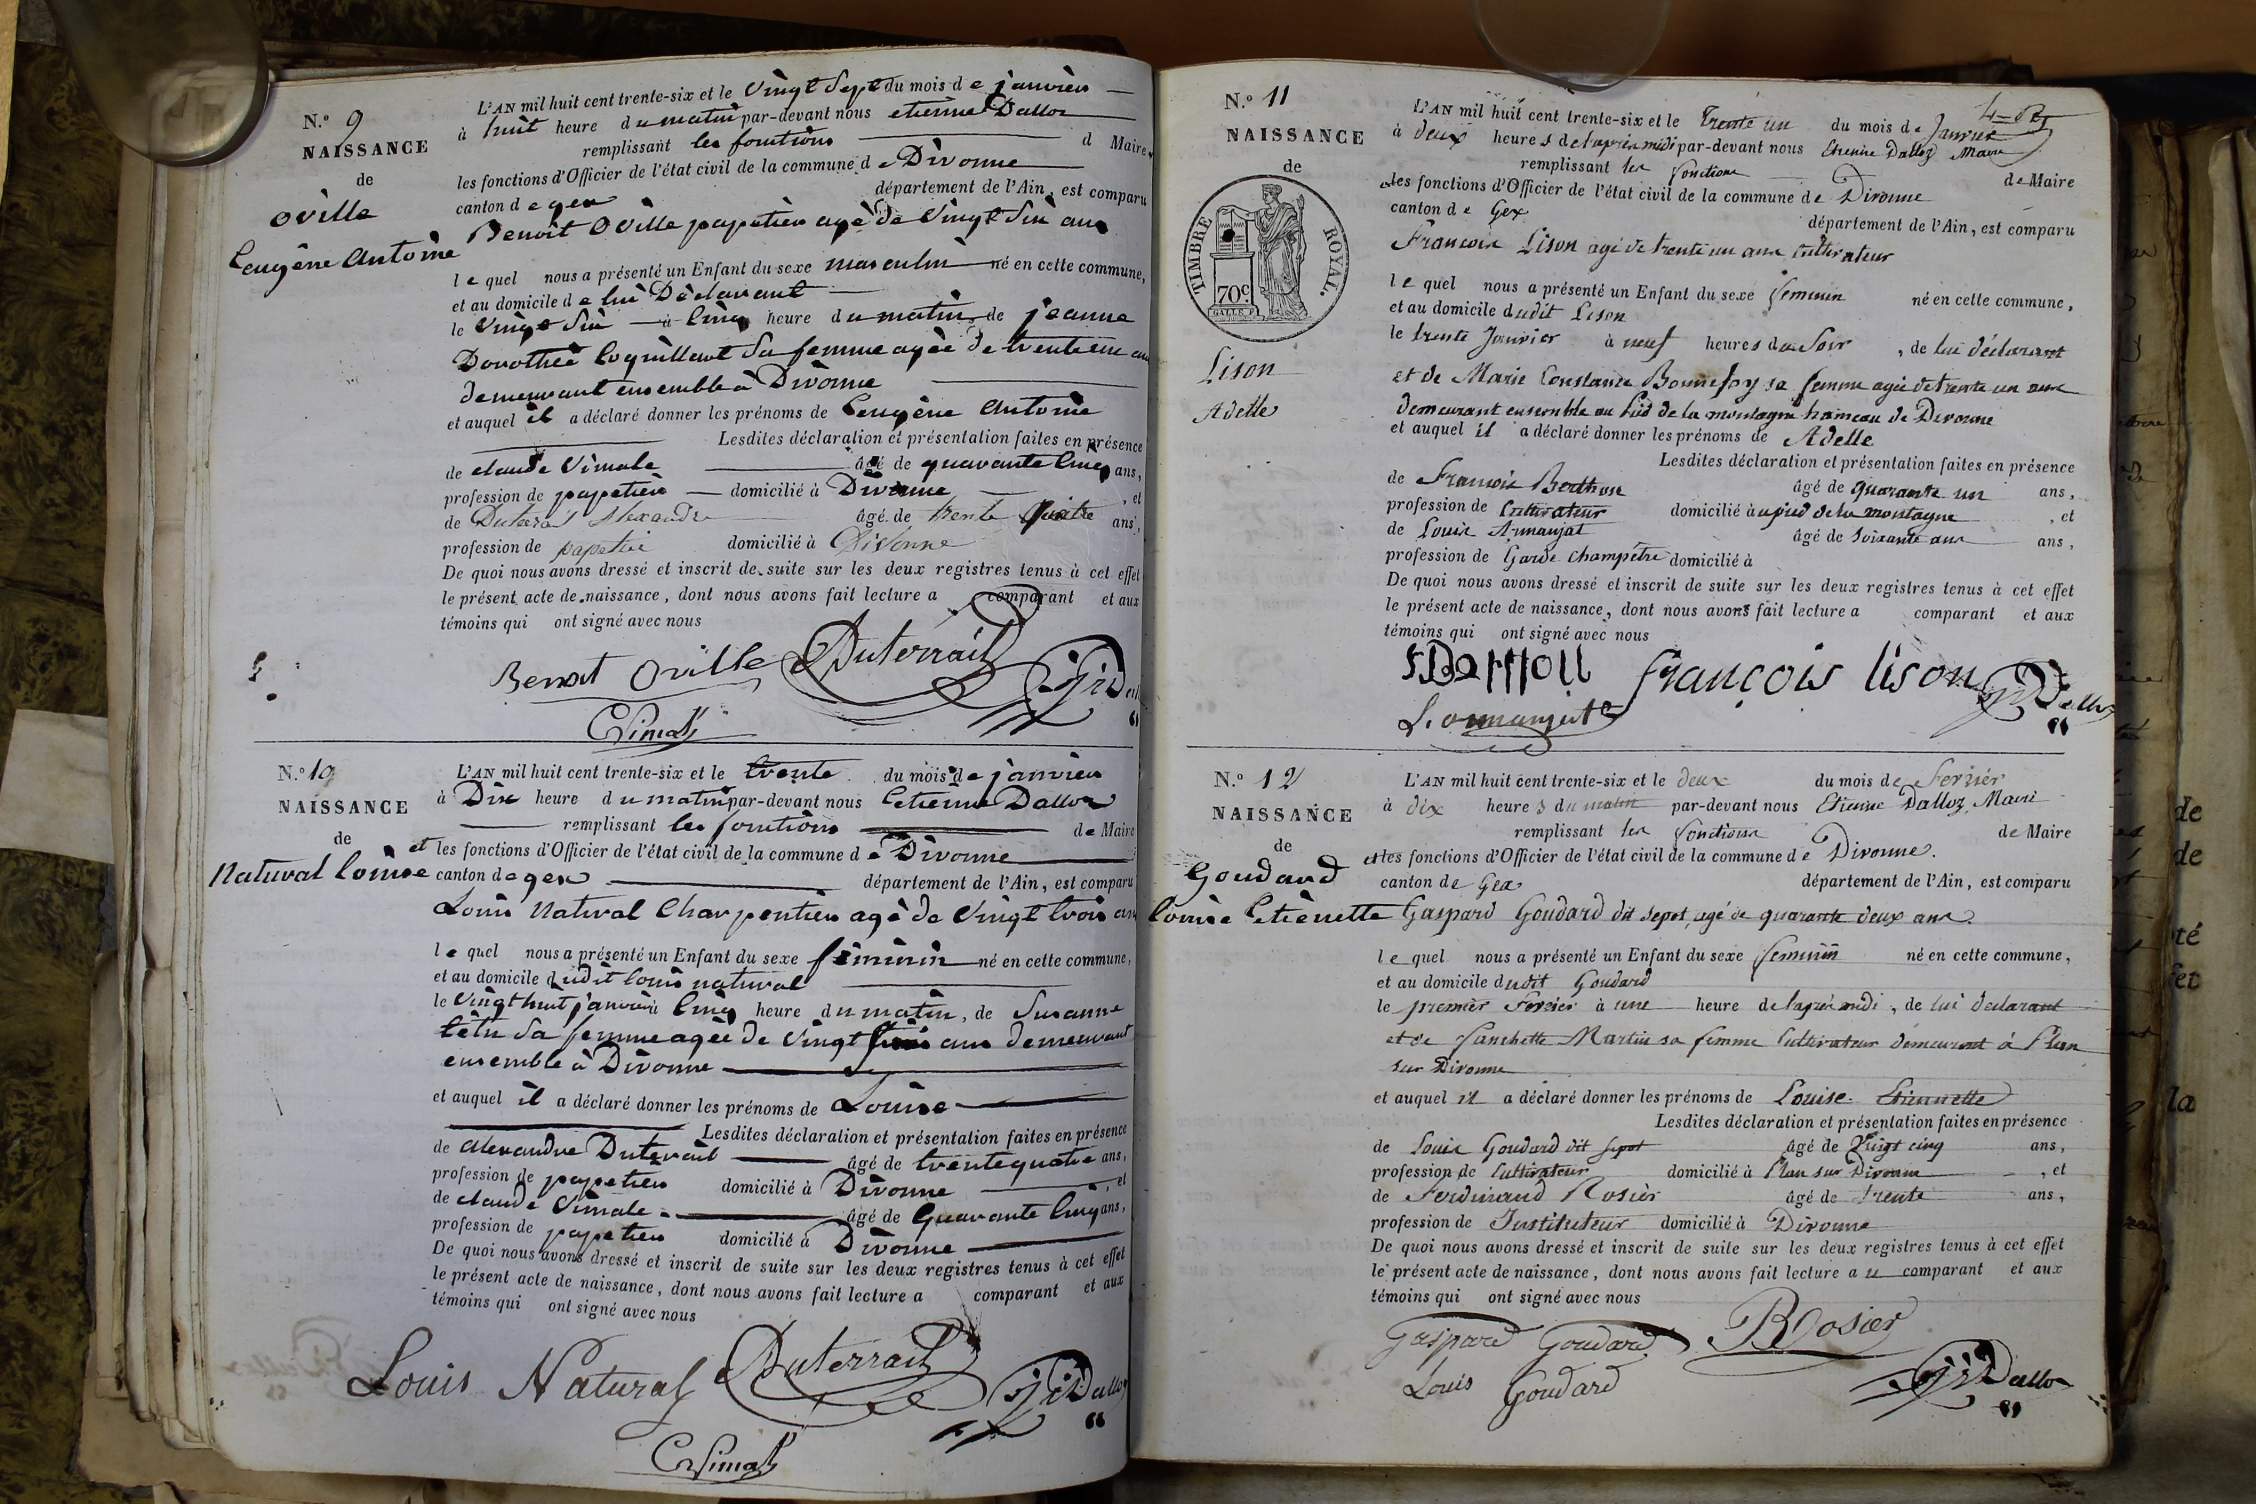 N.º 9
NAISSANCE
de
oville
Eeugène Antoine
L'AN mil huit cent trente-six et le vingt sept du mois de janvier
à huit heure du matin par-devant nous etienne Dalloz
remplissant les fonctions d Maire
les fonctions d'Officier de l'état civil de la commune de Divonne
canton de gex département de l'Ain, est comparu
Benoit Oville papetier agé de vingt six ans
le quel nous a présenté un Enfant du sexe masculin né en cette commune,
et au domicile de lui Déclarant
le vingt six à cinq heure du matin de jeanne
Dorothée Coquillard sa femme agée de trente ans
demeurant ensemble à Divonne
et auquel il a déclaré donner les prénoms de Eeugène Antoine
Lesdites déclaration et présentation faites en présence
de claude Vimale âgé de quarante cinq ans,
profession de papetier domicilié à Divonne , et
de Duterail alexandre âgé de trente quatre ans,
profession de papetier domicilié à Divonne
De quoi nous avons dressé et inscrit de suite sur les deux registres tenus à cet effet
le présent acte de naissance, dont nous avons fait lecture a comparant et aux
témoins qui ont signé avec nous
Benoit Oville Duterrail
C Vimal
N.º 10
NAISSANCE
de
Natural Louise
L'AN mil huit cent trente-six et le trente du mois de janvier
à Dix heure du matin par-devant nous Eetienne Dalloz
remplissant les fonctions de Maire
et les fonctions d'Officier de l'état civil de la commune de Divonne
canton de gex département de l'Ain, est comparu
Louis Natural Charpentier agé de vingt trois ans
le quel nous a présenté un Enfant du sexe féminin né en cette commune,
et au domicile dudit louis natural
le vingt huit janvier à cinq heure du matin, de Susanne
tétu sa femme agée de vingt ans demeurant
ensemble à Divonne
et auquel il a déclaré donner les prénoms de Louise
Lesdites déclaration et présentation faites en présence
de alexandre Duterail âgé de trente quatre ans,
profession de papetier domicilié à Divonne , et
de claude Vimale âgé de Quarante Cinq ans,
profession de papetier domicilié à Divonne
De quoi nous avons dressé et inscrit de suite sur les deux registres tenus à cet effet
le présent acte de naissance, dont nous avons fait lecture a comparant et aux
témoins qui ont signé avec nous
Louis Natural Duterrail Dalloz
C Vimal
N.º 11
NAISSANCE
de
TIMBRE ROYAL.
70c
Lison
Adelle
L'AN mil huit cent trente-six et le trente un du mois de Janvier
à deux heures de l'après midi par-devant nous Etienne Dalloz Maire
remplissant les fonctions de Maire
les fonctions d'Officier de l'état civil de la commune de Divonne
canton de Gex département de l'Ain, est comparu
Francois Lison agé de trente un ans Cultivateur
le quel nous a présenté un Enfant du sexe feminin né en cette commune,
et au domicile dudit Lison
le trente Janvier à neuf heures du Soir , de lui déclarant
et de Marie Constance Bonnefoy sa femme agée de trente un ans
demeurant ensemble au pied de la montagne hameau de Divonne
et auquel il a déclaré donner les prénoms de Adelle
Lesdites déclaration et présentation faites en présence
de Francois Berthou âgé de quarante un ans,
profession de Cultivateur domicilié à au pied de la montagne , et
de Louis Armanjat âgé de soixante ans ans,
profession de Garde champêtre domicilié à
De quoi nous avons dressé et inscrit de suite sur les deux registres tenus à cet effet
le présent acte de naissance, dont nous avons fait lecture a comparant et aux
témoins qui ont signé avec nous
françois lison Dalloz
N.º 12
NAISSANCE
de
Goudard
Louise Eetienette
L'AN mil huit cent trente-six et le deux du mois de Fevrier
à dix heures du matin par-devant nous Etienne Dalloz Maire
remplissant les fonctions de Maire
et les fonctions d'Officier de l'état civil de la commune de Divonne.
canton de Gex département de l'Ain, est comparu
Gaspard Goudard dit sepot, agé de quarante deux ans.
le quel nous a présenté un Enfant du sexe feminin né en cette commune,
et au domicile dudit Goudard
le premier Fevrier à une heure de l'après midi , de lui declarant
et de fanchette Martin sa femme Cultivateur demeurant à Plan
sur Divonne
et auquel il a déclaré donner les prénoms de Louise Etiennette
Lesdites déclaration et présentation faites en présence
de Louis Goudard dit sepot âgé de vingt cinq ans,
profession de Cultivateur domicilié à Plan sur Divonne , et
de Ferdinand Rosier âgé de trente ans,
profession de Instituteur domicilié à Divonne
De quoi nous avons dressé et inscrit de suite sur les deux registres tenus à cet effet
le présent acte de naissance, dont nous avons fait lecture au comparant et aux
témoins qui ont signé avec nous
Gaspard Goudard Rosier
Louis Goudard Dalloz